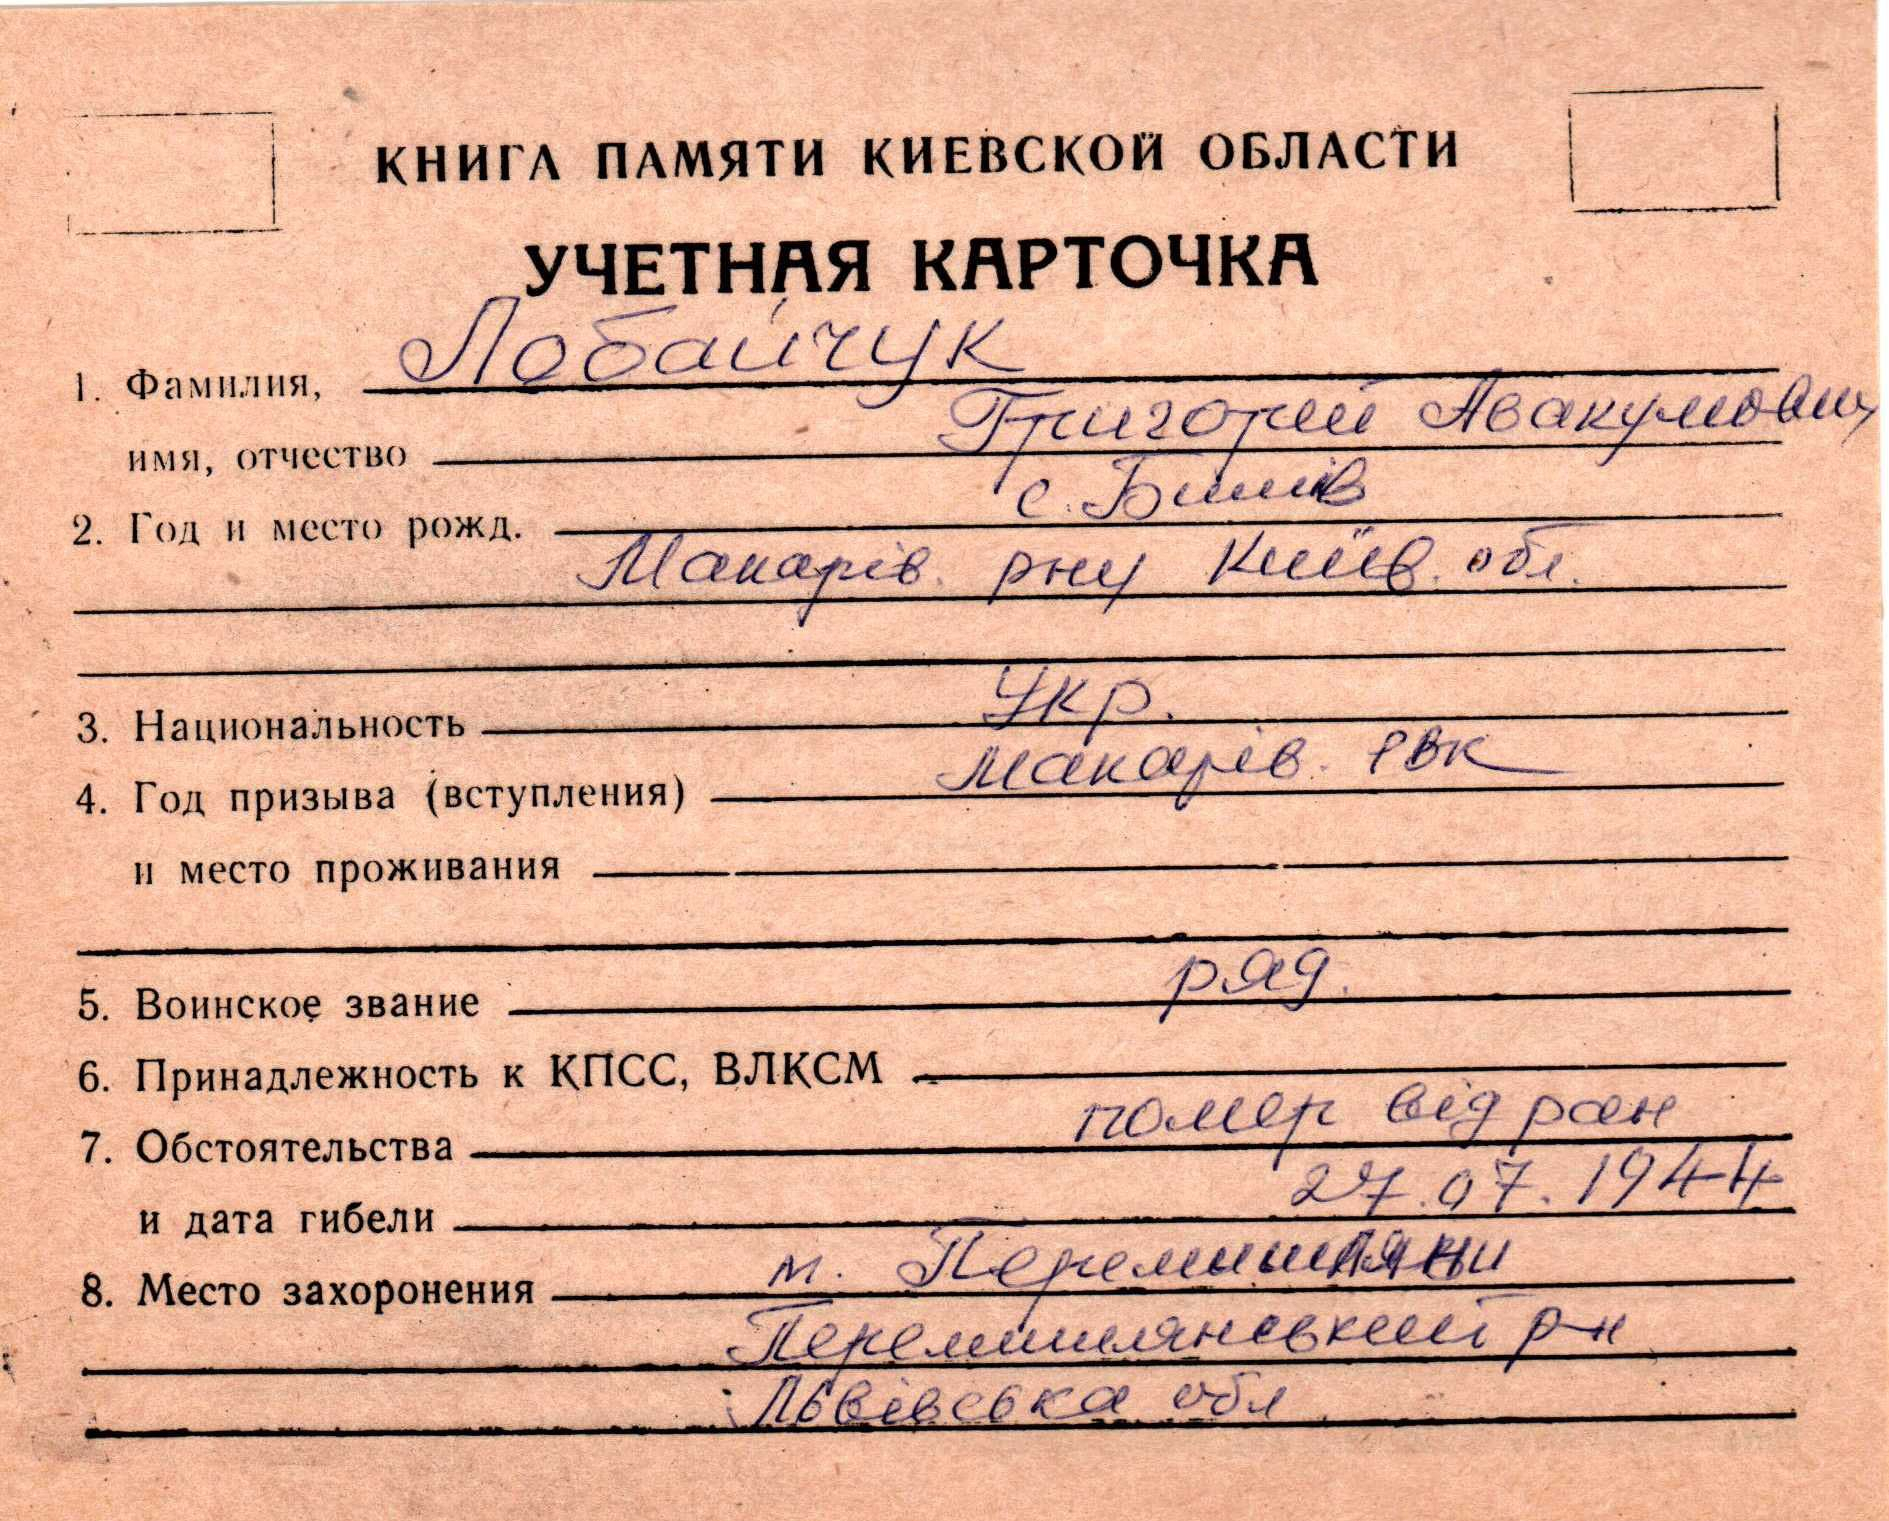 КНИГА ПАМЯТИ КИЕВСКОЙ ОБЛАСТИ
УЧЕТНАЯ КАРТОЧКА
1. Фамилия, Лобайчук
имя, отчество Григорий Авакумович
2. Год и место рожд. с.
Макарів. рну Київ. обл.
3. Национальность Укр.
4. Год призыва (вступления) Макарів. РВК
и место проживания
5. Воинское звание ряд.
6. Принадлежность к КПСС, ВЛКСМ
7. Обстоятельства помер від ран
и дата гибели 27.07.1944
8. Место захоронения м. Перемишляни
Перемишлянський р-н
Львівська обл.